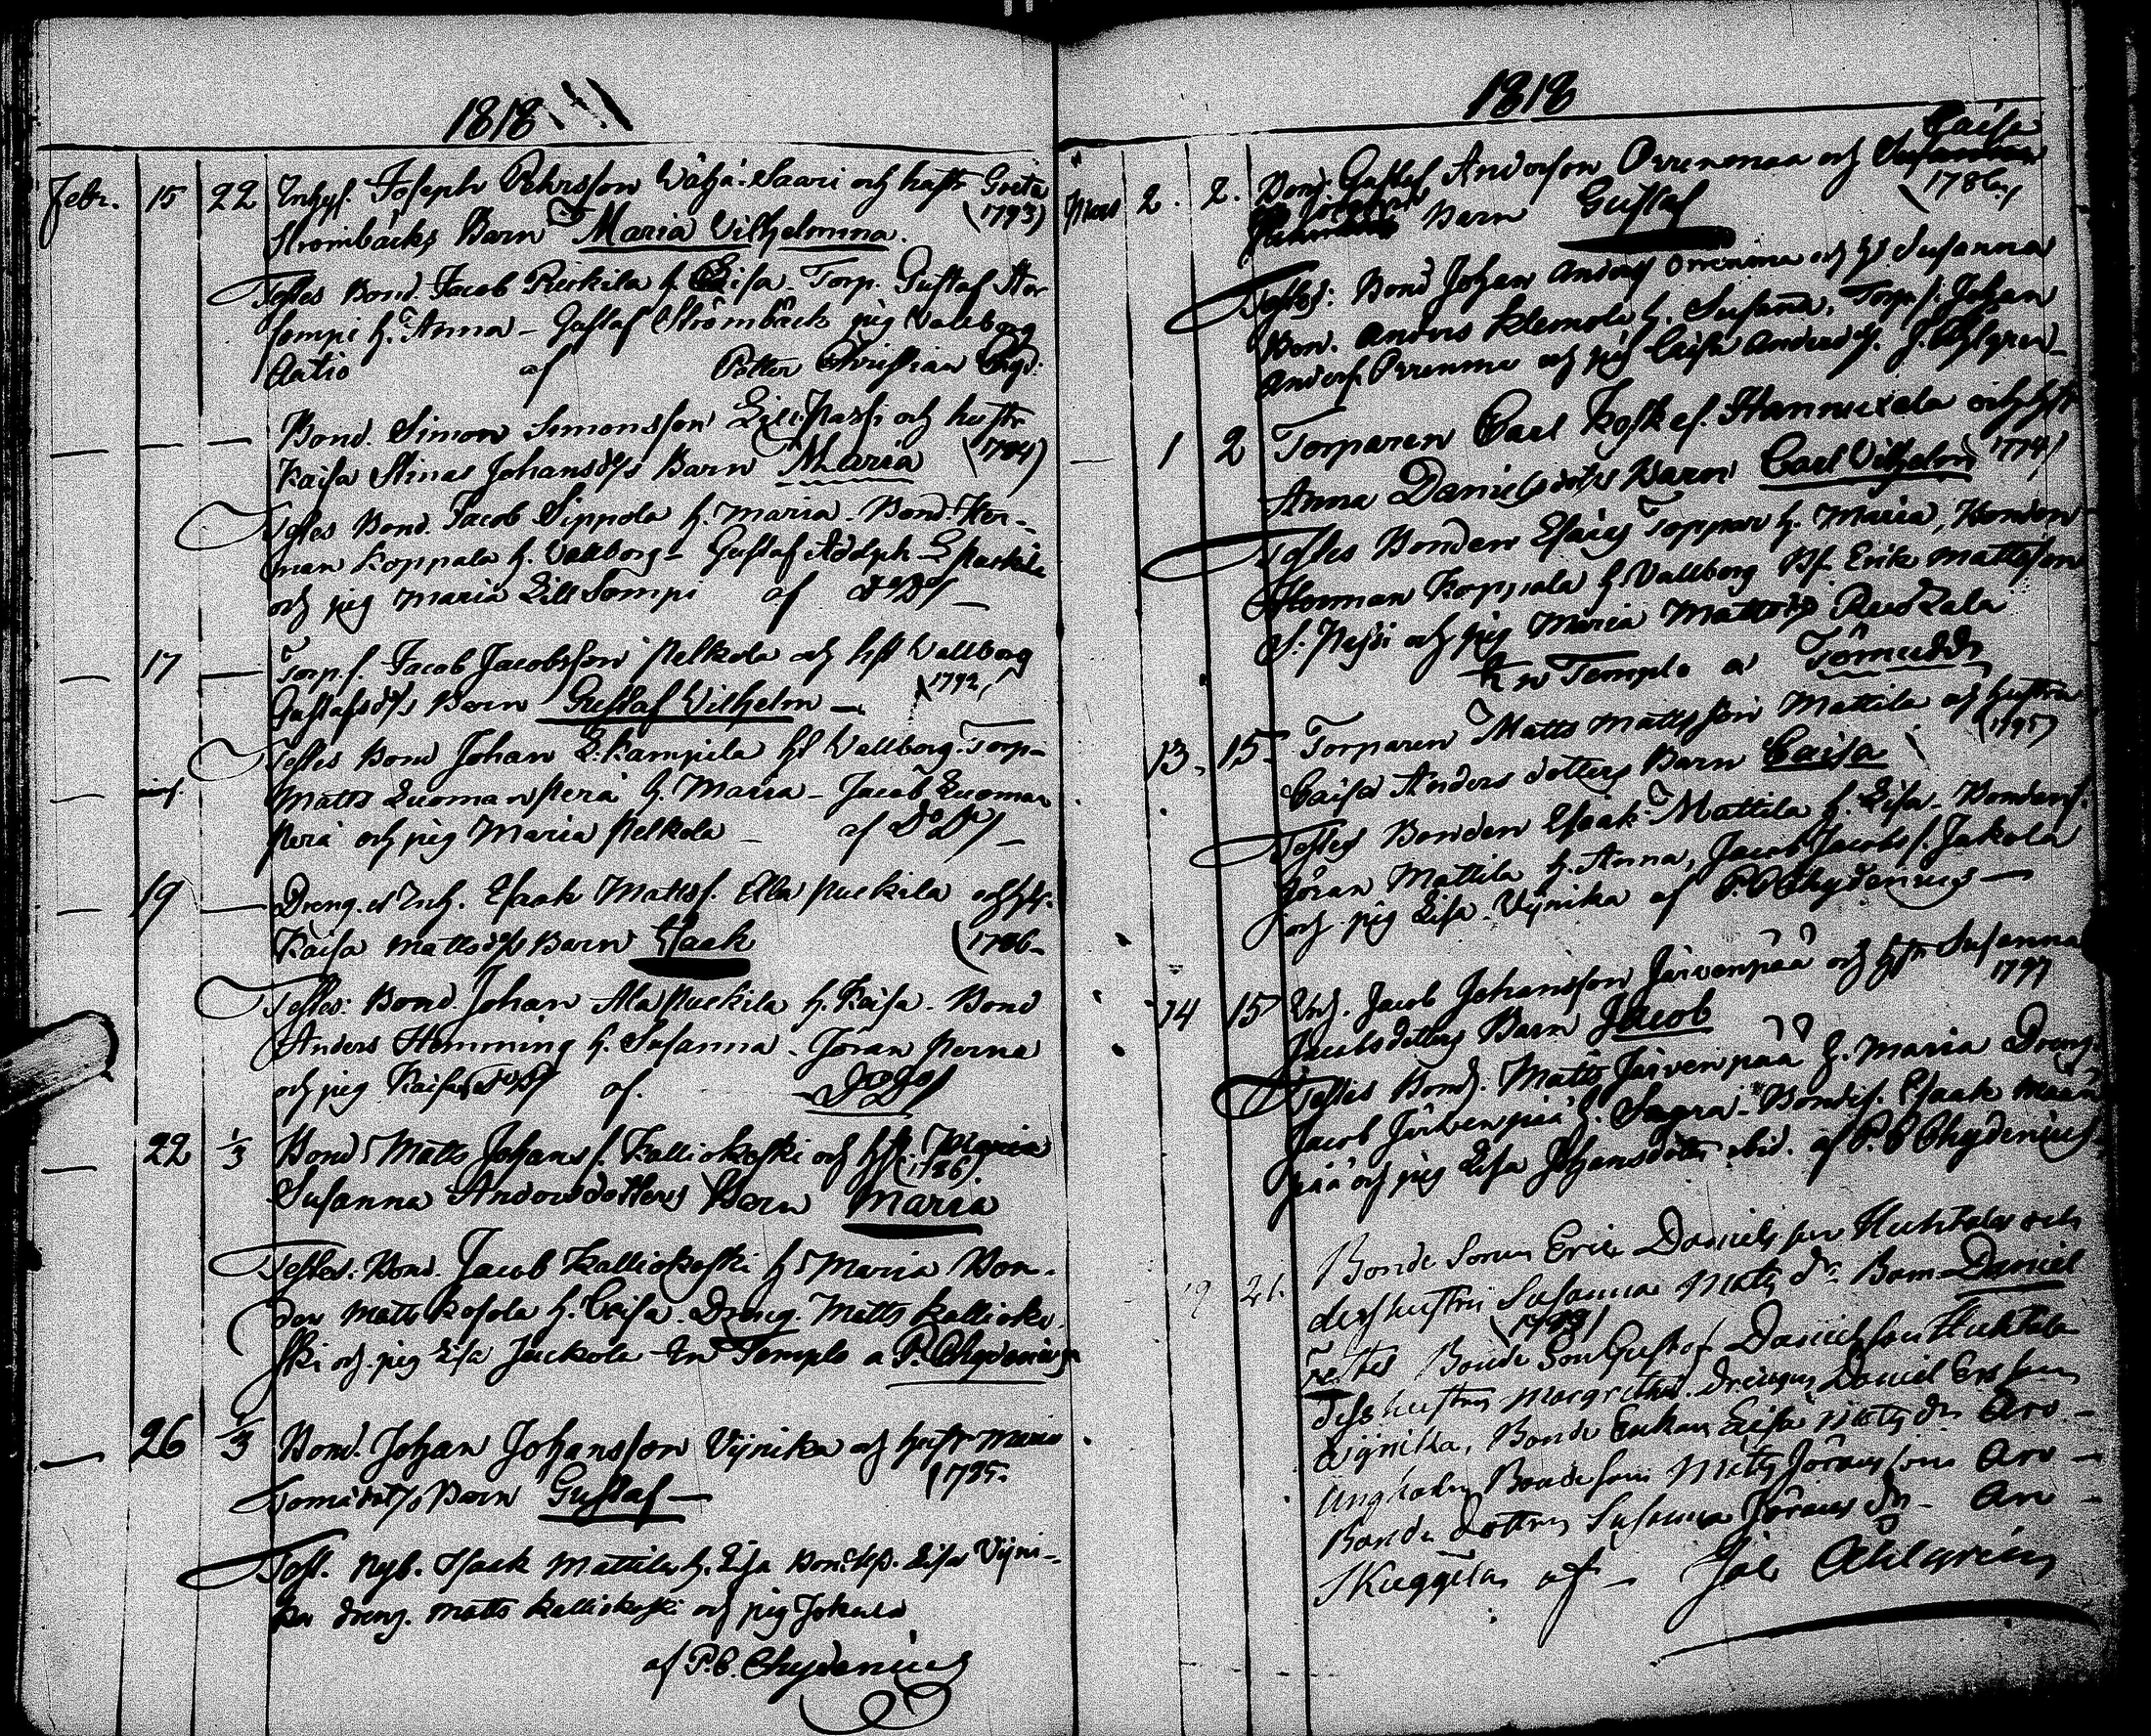 1818
Febr. 15 22 Inhys. Joseph Pehrsson Wähä-Saari och hustr Greta
Strömbäcks Barn Maria Vilhelmina. (1793)
Testes Bond. Jacob h. Lisa. Torp. Gustaf Stor
sompi h. Anna - Gustaf Strömbäck pig Vallborg
Antio af Petter Christian Chyd:
— — Bond. Simon Simonsson Lill Passi och hustr
Kaisa Stinas Johansd/s Barn Maria (1784)
Testes Bond. Jacob Sippola h. Maria - Bond. Her-
man Koppala h. Vallborg - Gustaf Adolph
och pig Maria Lill Sompi af D:o D:o
— 17 — Torp. s. Jacob Jacobsson Pelkola och hst Vallborg
Gustafsd/s Barn Gustaf Vilhelm — (1792)
Testes Bond Johan L. Kampila hst Vallborg. Torp-
Matts Luoman perä h. Maria - Jacob Luoman
perä och pig Maria Pelkola — af D:o D:o
— 19 — Dreng. et Inh. Esaak Matts s. Ala Puckila och hst.
Kaisa Mattsd/s Barn Esaak (1786-
Testes: Bond. Johan Ala Puckila h. Kaisa. Bond
Anders Hemming h. Susanna - Jöran Perna
och pig Kaisa af. D:o D:o
— 22 1/3 Bond. Matts Johans s. Kalliokoski och hst. Maria
Susanna Andersdotters Barn Maria (1786)
Testes: Bond. Jacob Kalliokoski h. Maria Bon-
den Matts Kosola h. Caisa. Dreng. Matts Kallioko-
ski och pig Lisa Juckola In Templo a P. Chydenius
— 26 1/3 Bond. Johan Johansson Vijnika och hustr Maria
Tomasdot/s Barn Gustaf — (1795.
Test. Nyb. Isaak Mattila h. Lisa Lisa Vijni-
ka dreng. Matts Kalliokoski och pig Johanna
af P.C. Chydenius
1818
Mars 2. 2. Bond. Gustaf Anderson Orrenmaa och Susanna Caisa
Barn Gustaf (1786)
Testes: Bond Johan Anders Orrenma och h. Susanna
Bon. Anders Klemola h. Susana, Torp. s. Johan
Anders Orrenma och pig Caisa Andersd/s. J. Ahlgren -
— 1 2 Torparen Carl Koske s. Hannuxela och hst
Anna Danielsdot/s Barn Carl Vilhelm 1774)
Testes Bonden Esaias Toppari h. Maria, Bonden
Herman Koppala h Vallborg Bs. Erik Mattsson
S. Passi och pig Maria Mattsd/s
In Templo a Tömudd
13. 15. Torparen Matts Mattsson Mattila och hustru
Caisa Anders dotters Barn Caisa (1795)
Testes Bonden Esaak Mattila h. Lisa - Bondens.
Jöran Mattila h. Anna, Jacob Jacobs s. Jakola
och pig Lisa Vijnika af P.C. Chydenius —
14 15 Bond. Jacob Johansson Järvenpää och hstr Susanna
Jacobsdotters Barn Jacob 1797
Testes Bond. Matts Järvenpää h. Maria Dreng
Jacob Järvenpää h. Sagra - Bondes. Esaak Mäen
pää och pig Lisa Johansdotter ibid. af P.C Chydenius
19 21. Bonde Sonen Eric Danielsson Huhtala och
dess hustru Susanna Mats dr Barn Daniel
(1799)
Testes Bonde Son Gustaf Danielsson Huhtala
dess hustru Margretha. Drengen Daniel Ersson
Wijnika, Bonde Enkan Lisa Mats dr Aro -
Ungkarln Bondeson Mats Jöransson Aro -
Bonde dottren Susanna Jörans dr - Aro -
Skuggila af - Joh Ahlgren